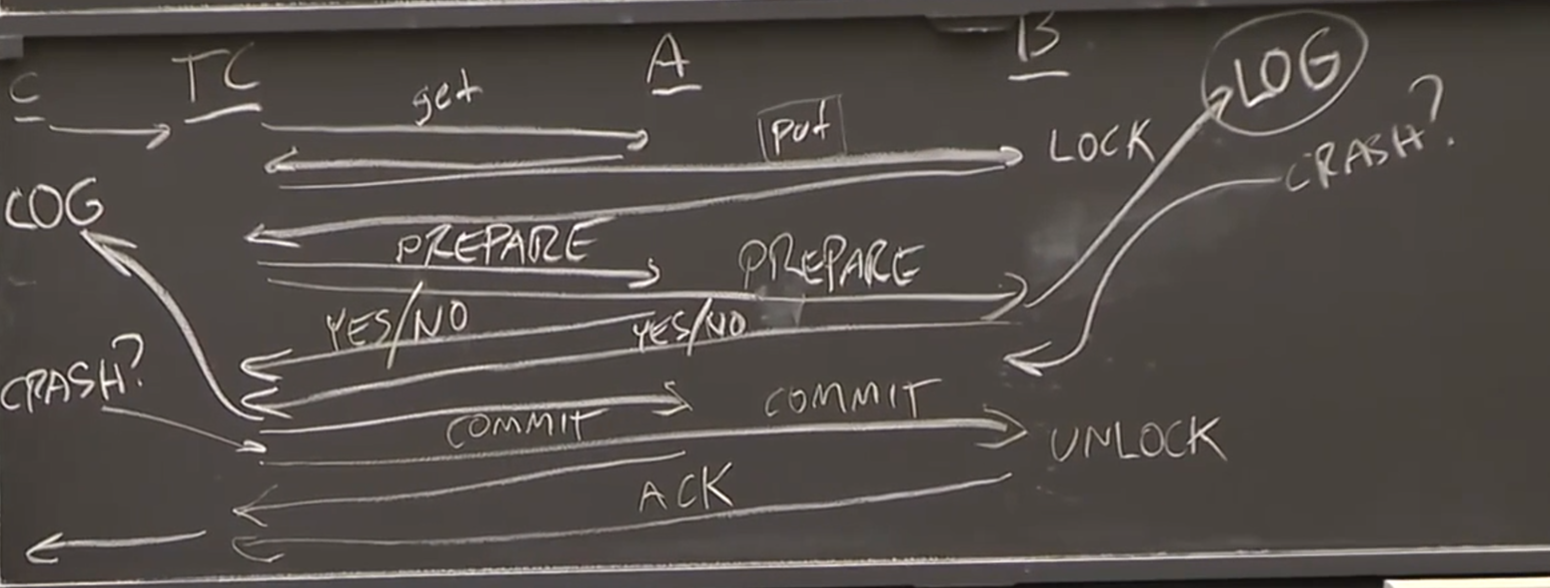 C TC A B LOG
get put LOCK CRASH?
LOG
PREPARE PREPARE
YES/NO YES/NO
CRASH?
COMMIT COMMIT
UNLOCK
ACK